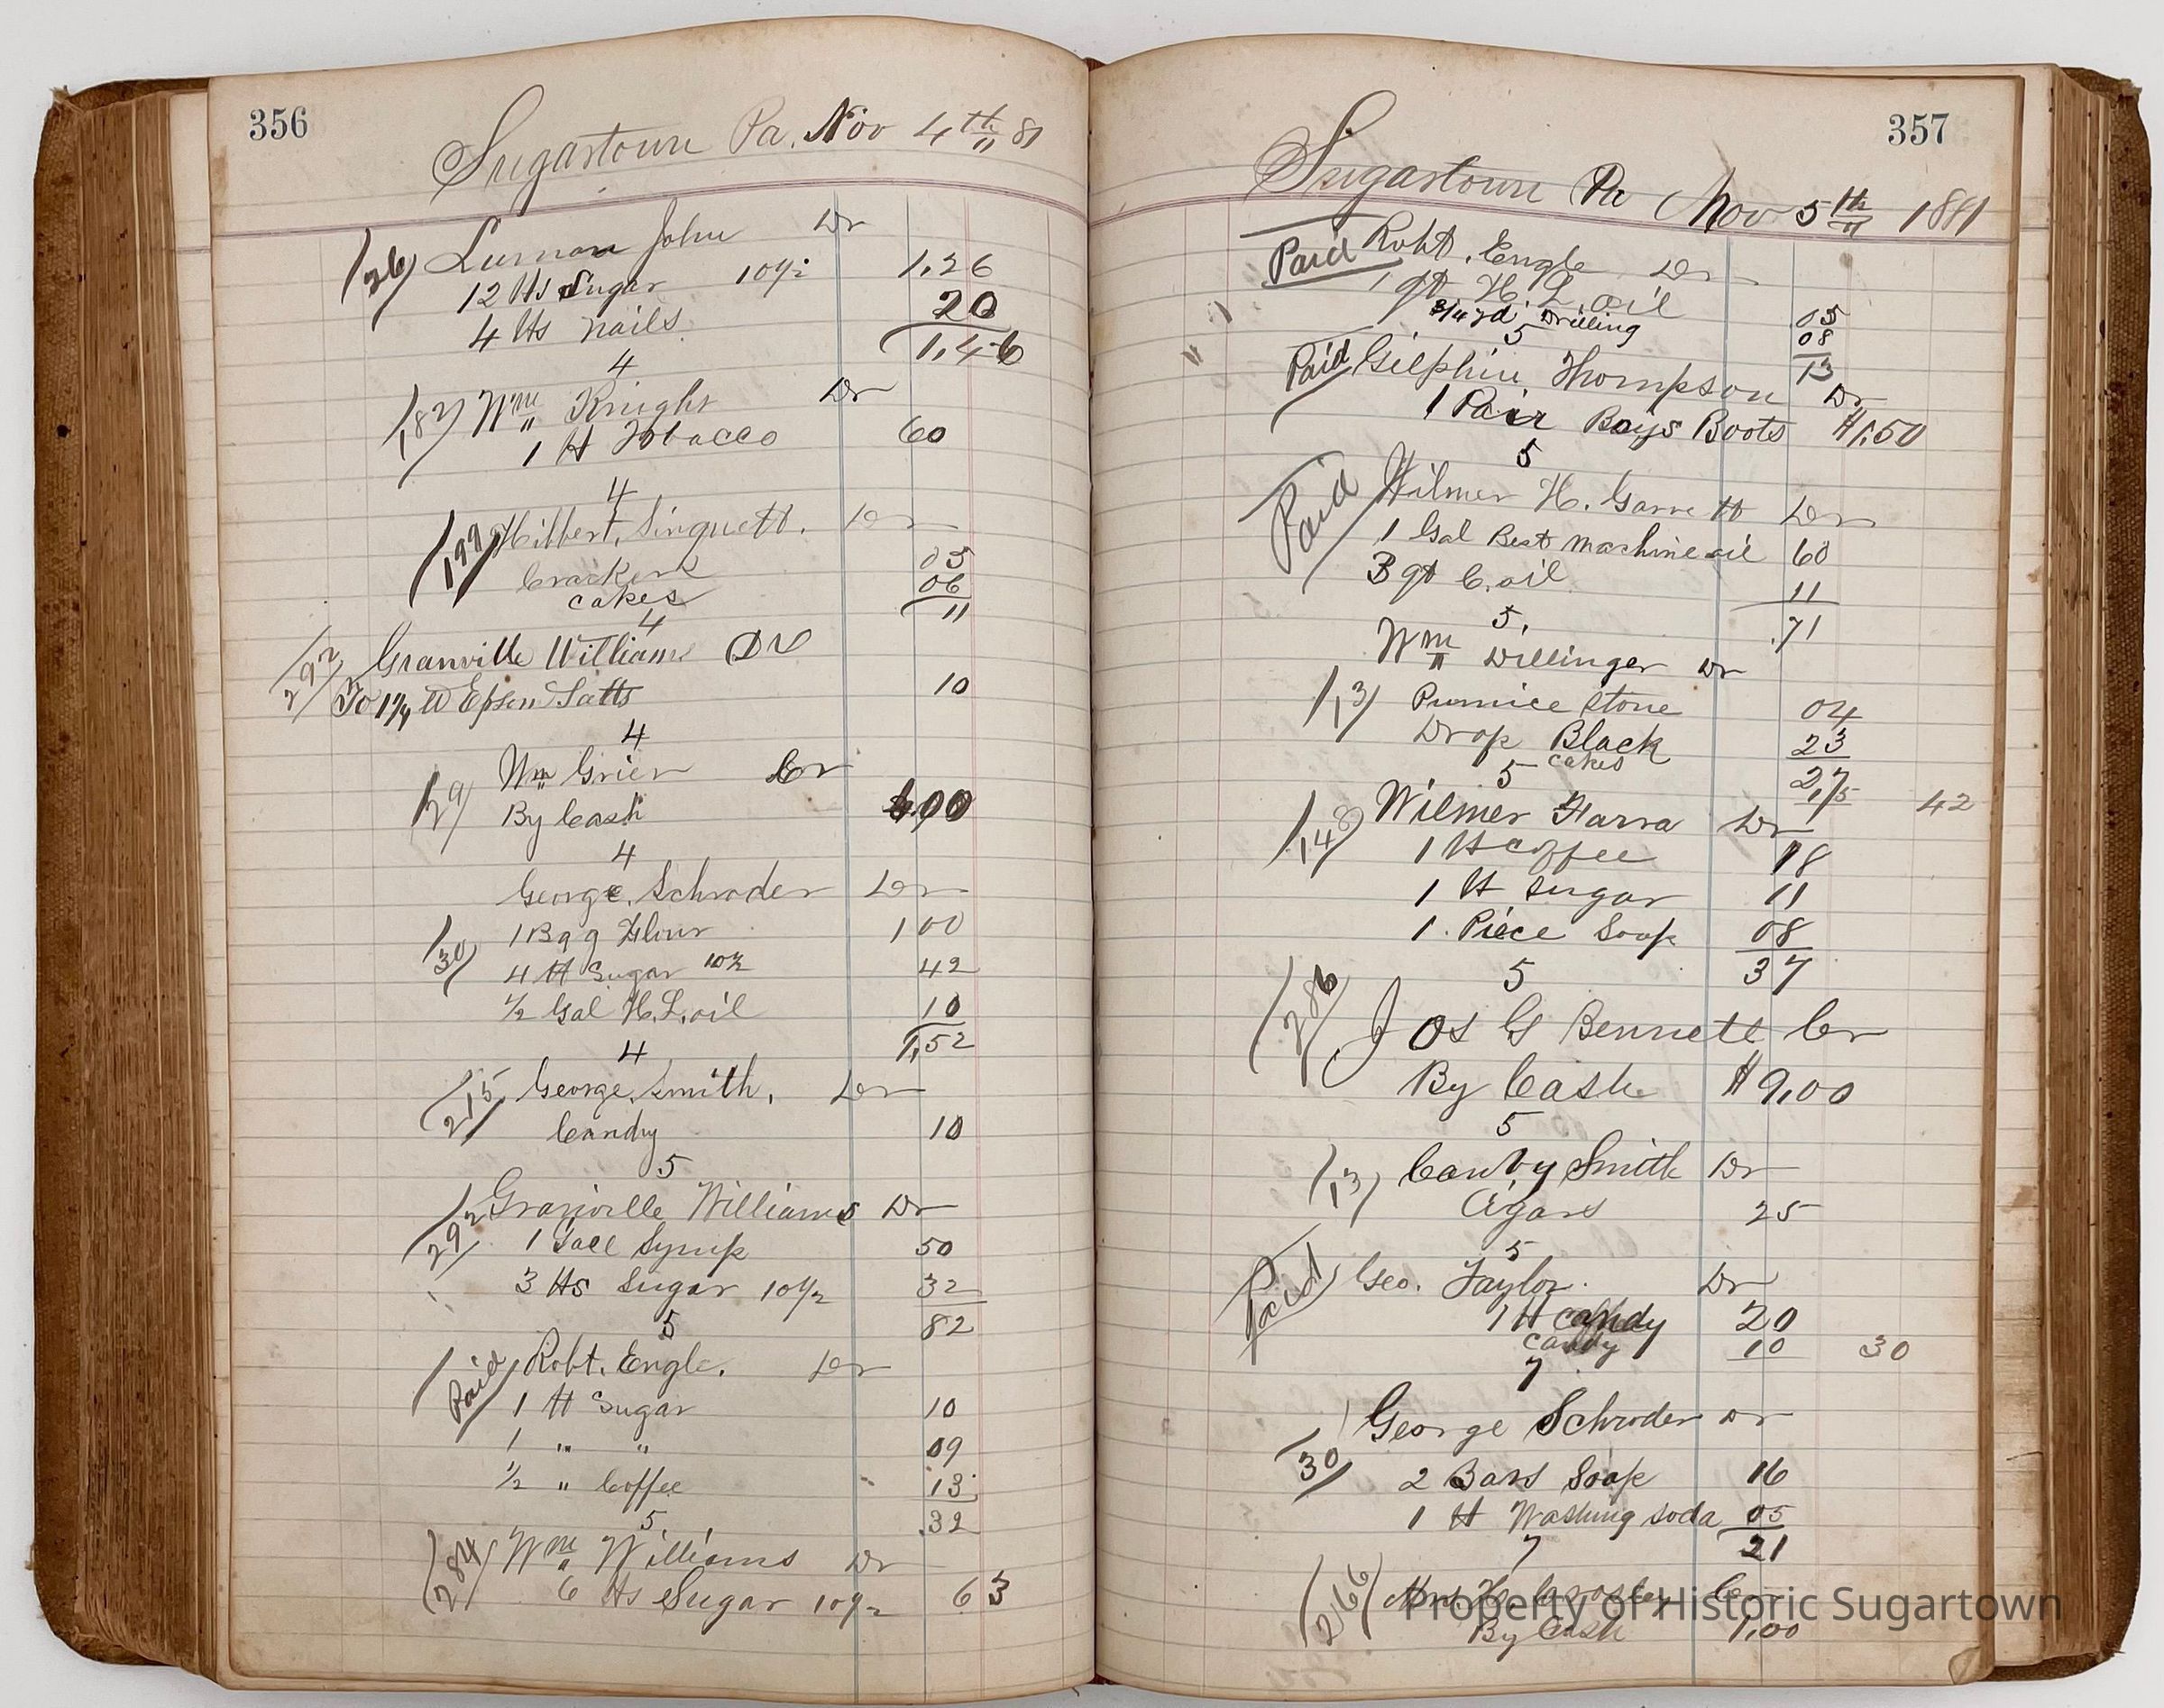 356
Sugartown Pa. Nov 4th 81
26 Luman John Dr
12 lbs Sugar 10½ 1.26
4 lbs nails 20
1.46
4
182 Wm Knight Dr
1 lb Tobacco 60
4
199 Hilbert Dr
Crackers 05
cakes 06
11
4
292 Granville Williams Dr
To 1¼ lb Epson Salts 10
4
29 Wm Grier Cr
By Cash
4
George Schroder Dr
30 1 Bag Flour 1 00
4 lb Sugar 10½ 42
½ Gal H.L. oil 10
1,52
4
215 George Smith, Dr
Candy 10
5
292 Granville Williams Dr
1 Gall Syrup 50
3 lbs Sugar 10½ 32
82
5
Paid Robt. Engle. Dr
1 lb Sugar 10
1 " " 09
½ " Coffee 13
.32
5
284 Wm Williams Dr
6 lbs Sugar 10½ 63
357
Sugartown Pa Nov 5th 1881
Paid Robt. Engle Dr
1 qt H.L. oil 05
3/4 yd. Drilling 08
13
5
Paid Gilphin Thompson Dr
1 Pair Boys Boots $1.50
5
Paid Wilmer H. Garrett Dr
1 Gal Best machine oil 60
3 qt C. oil 11
.71
5.
Wm Dillinger Dr
13 Pumice Stone 04
Drop Black 23
cakes 27
5 42
148 Wilmer Farra Dr
1 lb coffee 18
1 lb sugar 11
1. Piece Soap 08
37
5
286 Jos G Bennett Cr
By Cash $9,00
5
13 Canby Smith Dr
Cigars 25
5
Paid Geo. Taylor. Dr
1 lb candy 20
candy 10 30
7
George Schroder Dr
30 2 Bars Soap 16
1 lb Washing soda 05
21
7
266 Mrs. H. Crossley Cr
By Cash 1,00
Property of Historic Sugartown